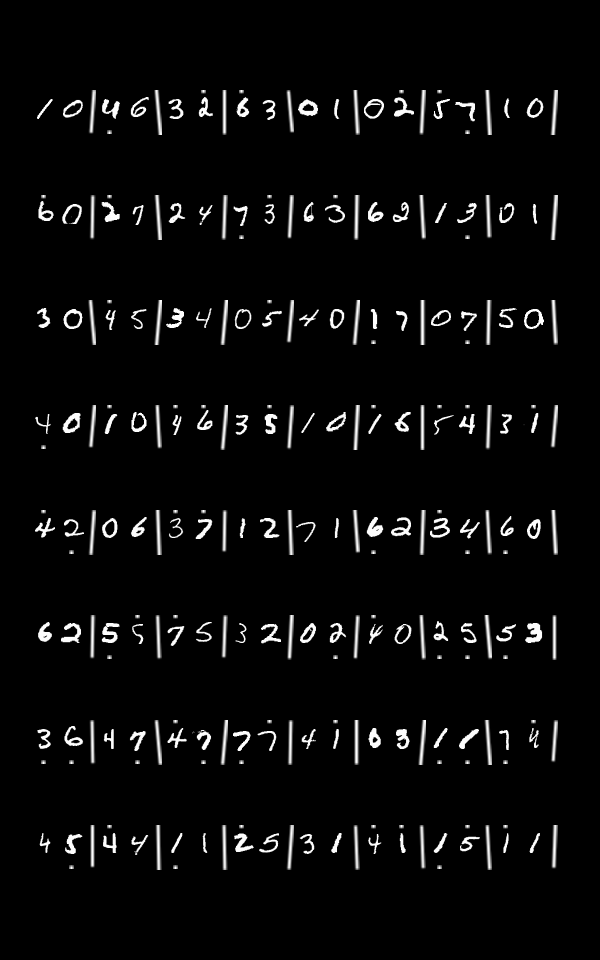 1 0 | 4̣ 6 | 3 2̇ | 6̇ 3 | 0 1 | 0 2̇ | 5̇ 7̣ | 1 0 |
6̇ 0 | 2̇ 7 | 2 4 | 7̣ 3̇ | 6 3̇ | 6 2 | 1 3̣ | 0 1 |
3 0 | 4̇ 5 | 3 4 | 0 5̇ | 4 0 | 1̣ 7 | 0 7̣ | 5 0 |
4̣ 0 | 1̇ 0 | 4̇ 6̇ | 3 5̇ | 1 0 | 1̇ 6 | 5̇ 4̇ | 3 1̇ |
4̇ 2̣ | 0 6 | 3̇ 7̇ | 1 2 | 7 1 | 6̣ 2 | 3̇ 4̣ | 6̣ 0 |
6 2 | 5̣ 5̇ | 7̇ 5 | 3 2 | 0 2̣ | 4̇ 0 | 2̣ 5̣ | 5̣ 3 |
3̣ 6̣ | 4 7̣ | 4̇ 7̣ | 7̣ 7̇ | 4 1̇ | 6 3 | 1̣ 1̣ | 7̣ 4̇ |
4 5̣ | 4̇ 4 | 1̣ 1 | 2̇ 5 | 3 1 | 4̇ 1̇ | 1̣ 5̇ | 1̇ 1 |